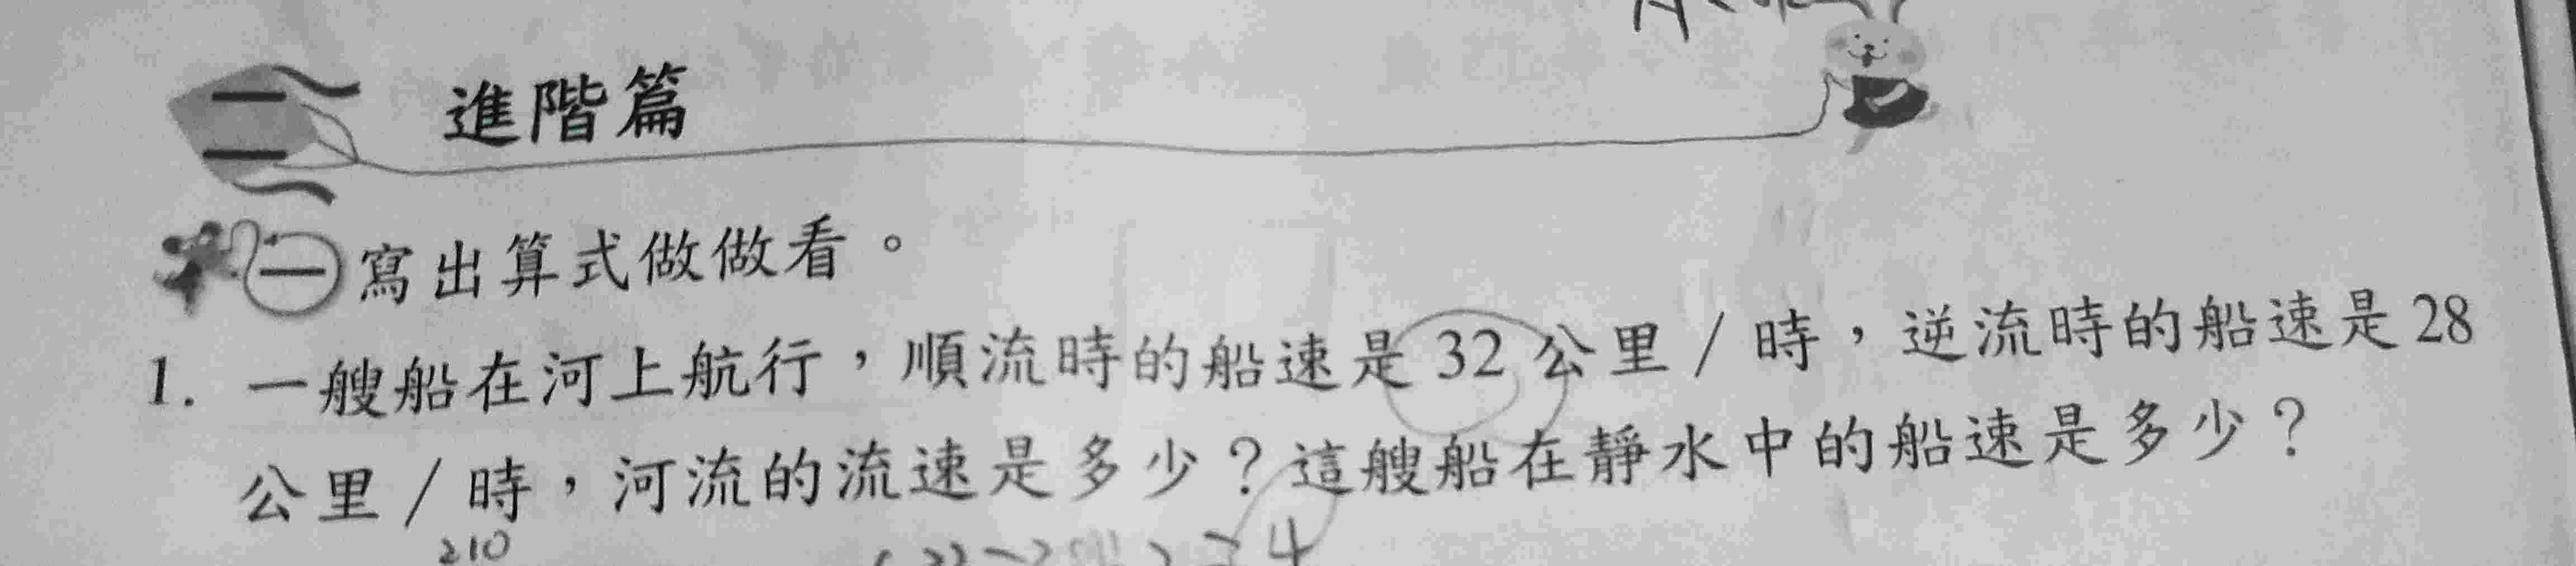 二 進階篇
一 寫出算式做做看。
1. 一艘船在河上航行，順流時的船速是32公里/時，逆流時的船速是28
公里/時，河流的流速是多少？這艘船在靜水中的船速是多少？
210
4